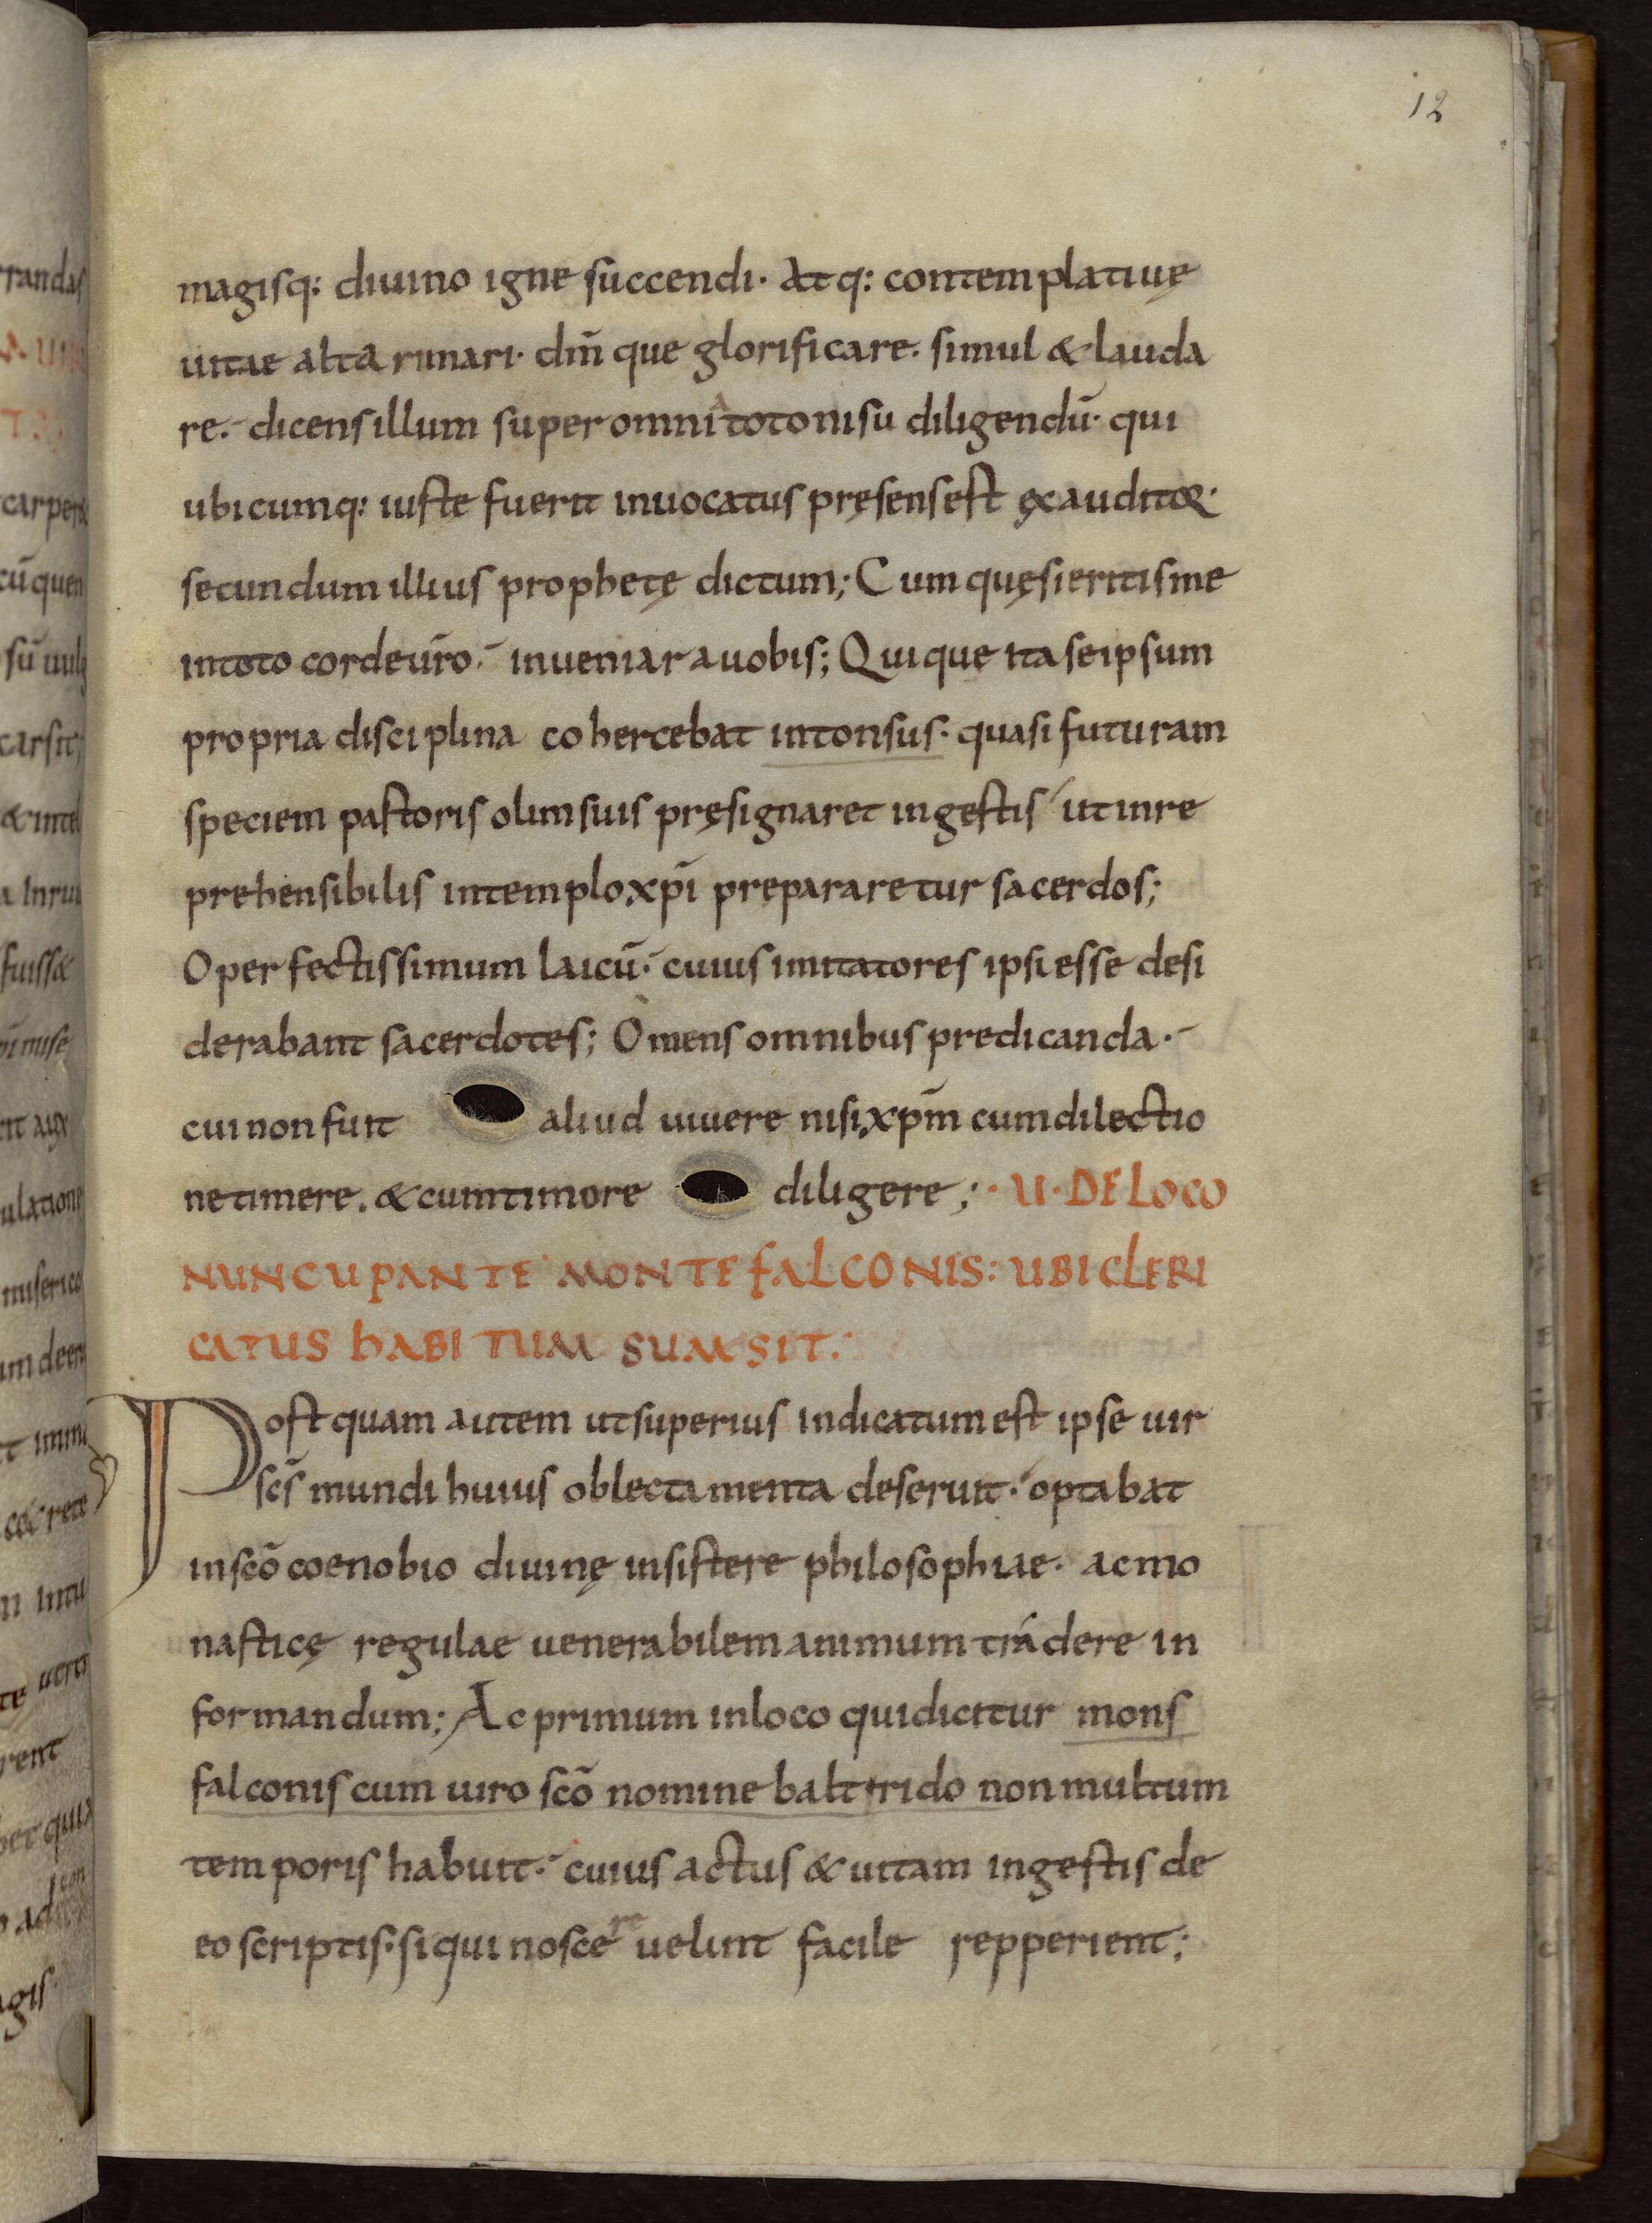 12
magisq: diuino igne succendi. Atq: contemplatiuę
uitae alta rimari. dm̄ que glorificare. simul & lauda
re. dicens illum super omnia toto nisu diligendū. qui
ubicumq: iuste fuerit inuocatus pręsens est
secundum illius prophetę dictum; Cum quęsieritis me
in toto corde ur̄o. inueniar a uobis; Qui que ita se ipsum
propria disciplina cohercebat intonsus. quasi futuram
speciem pastoris olim suis pręsignaret in gestis ut inre
prehensibilis in templo xp̄i prepararetur sacerdos;
O perfectissimum laicū. cuius imitatores ipsi esse desi
derabant sacerdotes; O mens omnibus predicanda.
cui non fuit aliud uiuere nisi xp̄m cum dilectio
ne timere. & cum timore diligere; U. DE LOCO
NUNCUPANTE MONTE FALCONIS: UBI CLERI
CATUS HABITUM SUMSIT.
Postquam autem ut superius indicatum est ipse uir
sc̄s mundi huius oblectamenta deseruit. optabat
in scō coenobio diuinę insistere philosophiae. ac mo
nasticę regulae uenerabilem animum tradere in
formandum; Ac primum in loco qui dicitur mons
falconis cum uiro scō nomine baltfrido non multum
temporis habuit. cuius actus & uitam in gestis de
eo scriptis. si qui noscere uelint facile repperient;